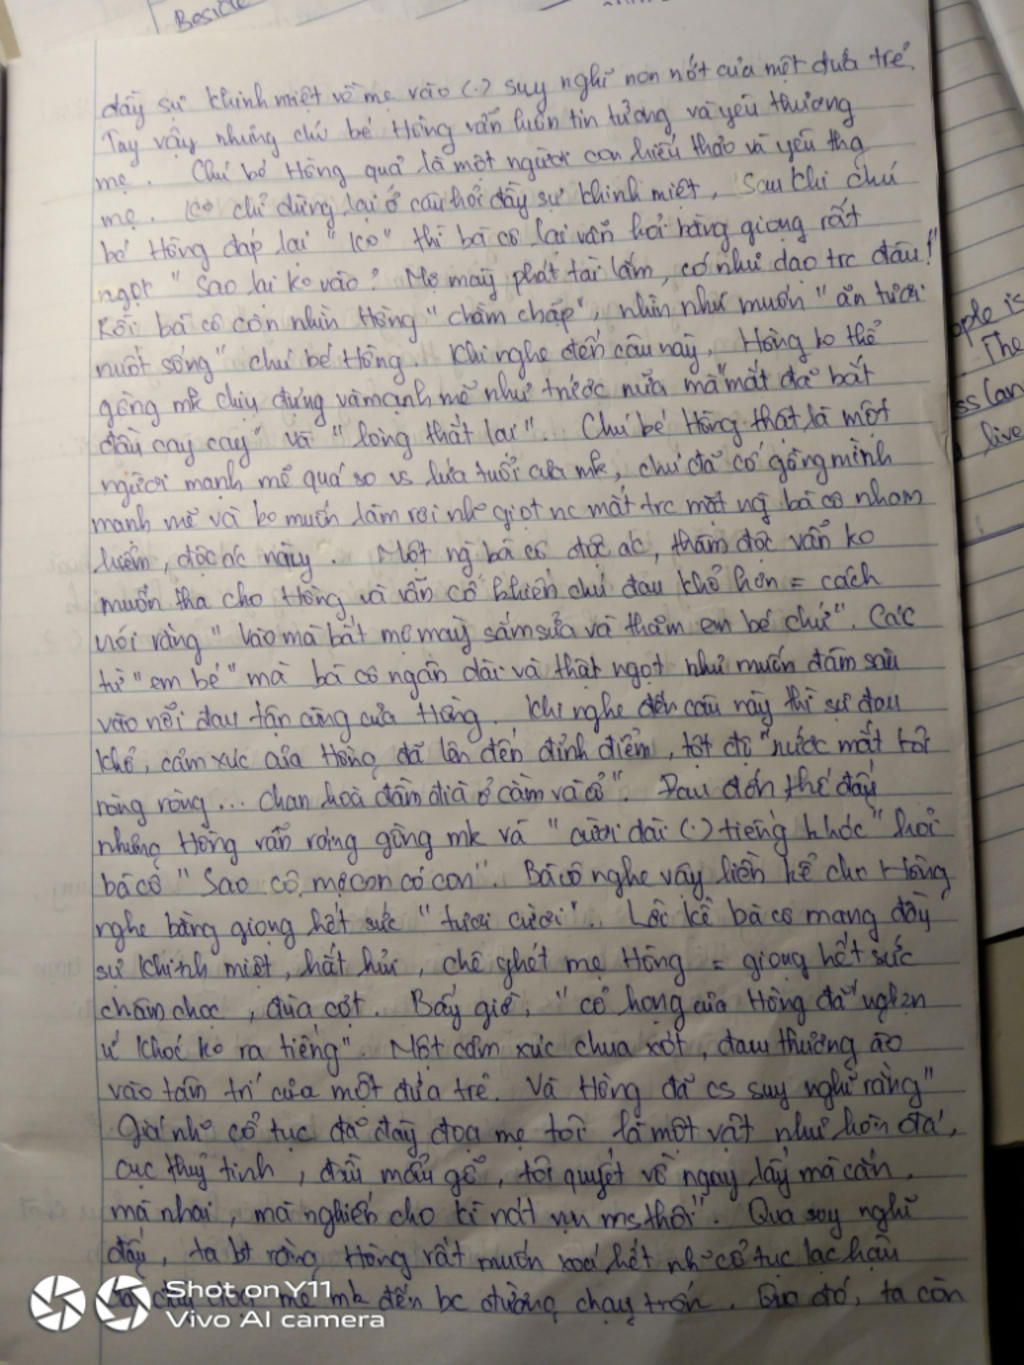 Beside
đầy sự khinh miệt về mẹ vào (.) suy nghĩ non nớt của một đứa trẻ.
Tuy vậy nhưng chú bé Hồng vẫn luôn tin tưởng và yêu thương
mẹ. Chú bé Hồng quả là một người con hiếu thảo và yêu thg
mẹ. Ko chỉ dừng lại ở câu hỏi đầy sự khinh miệt, Sau khi chú
bé Hồng đáp lại "Ko" thì bà cô lại vẫn hỏi bằng giọng rất
ngọt "Sao lại ko vào? Mợ mày phát tài lắm, có như dạo trc đâu!"
Rồi bà cô còn nhìn Hồng "chằm chặp", nhìn như muốn "ăn tươi
nuốt sống" chú bé Hồng. Khi nghe đến câu này, Hồng ko thể
gồng mk chịu đựng và mạnh mẽ như trước nữa mà "mắt đã bắt
đầu cay cay" và "lòng thắt lại". Chú bé Hồng thật là một
người mạnh mẽ quá so vs lứa tuổi của mk, chú đã cố gồng mình
mạnh mẽ và ko muốn làm rơi nh~ giọt nc mắt trc mặt ng bà cô nham
hiểm, độc ác này. Một ng bà cô độc ác, thâm độc vẫn ko
muốn tha cho Hồng và vẫn cố khiến chú đau khổ hơn = cách
nói rằng "Vào mà bắt mợ mày sắm sửa và thăm em bé chứ". Các
từ "em bé" mà bà cô ngân dài và thật ngọt như muốn đâm sâu
vào nỗi đau tận cùng của Hồng. Khi nghe đến câu này thì sự đau
khổ, cảm xúc của Hồng đã lên đến đỉnh điểm, tột độ "nước mắt tôi
ròng ròng... chan hoà đầm đìa ở cằm và cổ". Đau đớn thế đấy
nhưng Hồng vẫn gồng mk và "cười dài (.) tiếng khóc" hỏi
bà cô "Sao cô mợ con có con". Bà cô nghe vậy liền kể cho Hồng
nghe bằng giọng hết sức "tươi cười". Lời kể bà cô mang đầy
sự khinh miệt, hắt hủi, chê ghét mẹ Hồng = giọng hết sức
châm chọc, đùa cợt. Bấy giờ, "cổ họng của Hồng đã "nghẹn
ứ khóc ko ra tiếng". Một cảm xúc chua xót, đau thương ào
vào tâm trí của một đứa trẻ. Và Hồng đã cs suy nghĩ rằng"
Giá nh~ cổ tục đã đày đoạ mẹ tôi là một vật như hòn đá,
cục thuỷ tinh, đầu mẩu gỗ, tôi quyết vồ ngay lấy mà cắn,
mà nhai, mà nghiến cho kì nát vụn ms thôi". Qua suy nghĩ
đấy, ta bt rằng Hồng rất muốn xoá hết nh~ cổ tục lạc hậu
đã đày đoạ mẹ mk đến bc đường chạy trốn. Qua đó, ta còn
ople is
The
ss can
live
Shot on Y11
Vivo AI camera